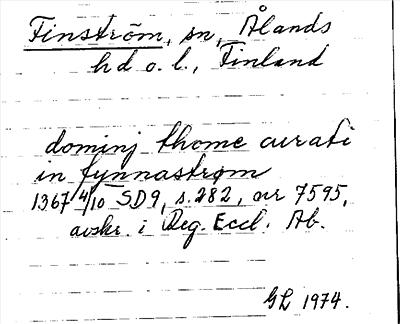 Finström, sn, Ålands
hd o. l., Finland
dominj thome curati
in fynnastrøm
1367 4/10 SD9, s. 282, nr 7595,
avskr. i Reg. Eccl. Ab.
GL 1974.